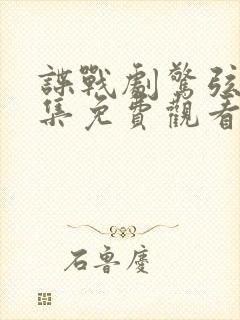 諜戰劇驚弦
集免費觀看
石魯慶